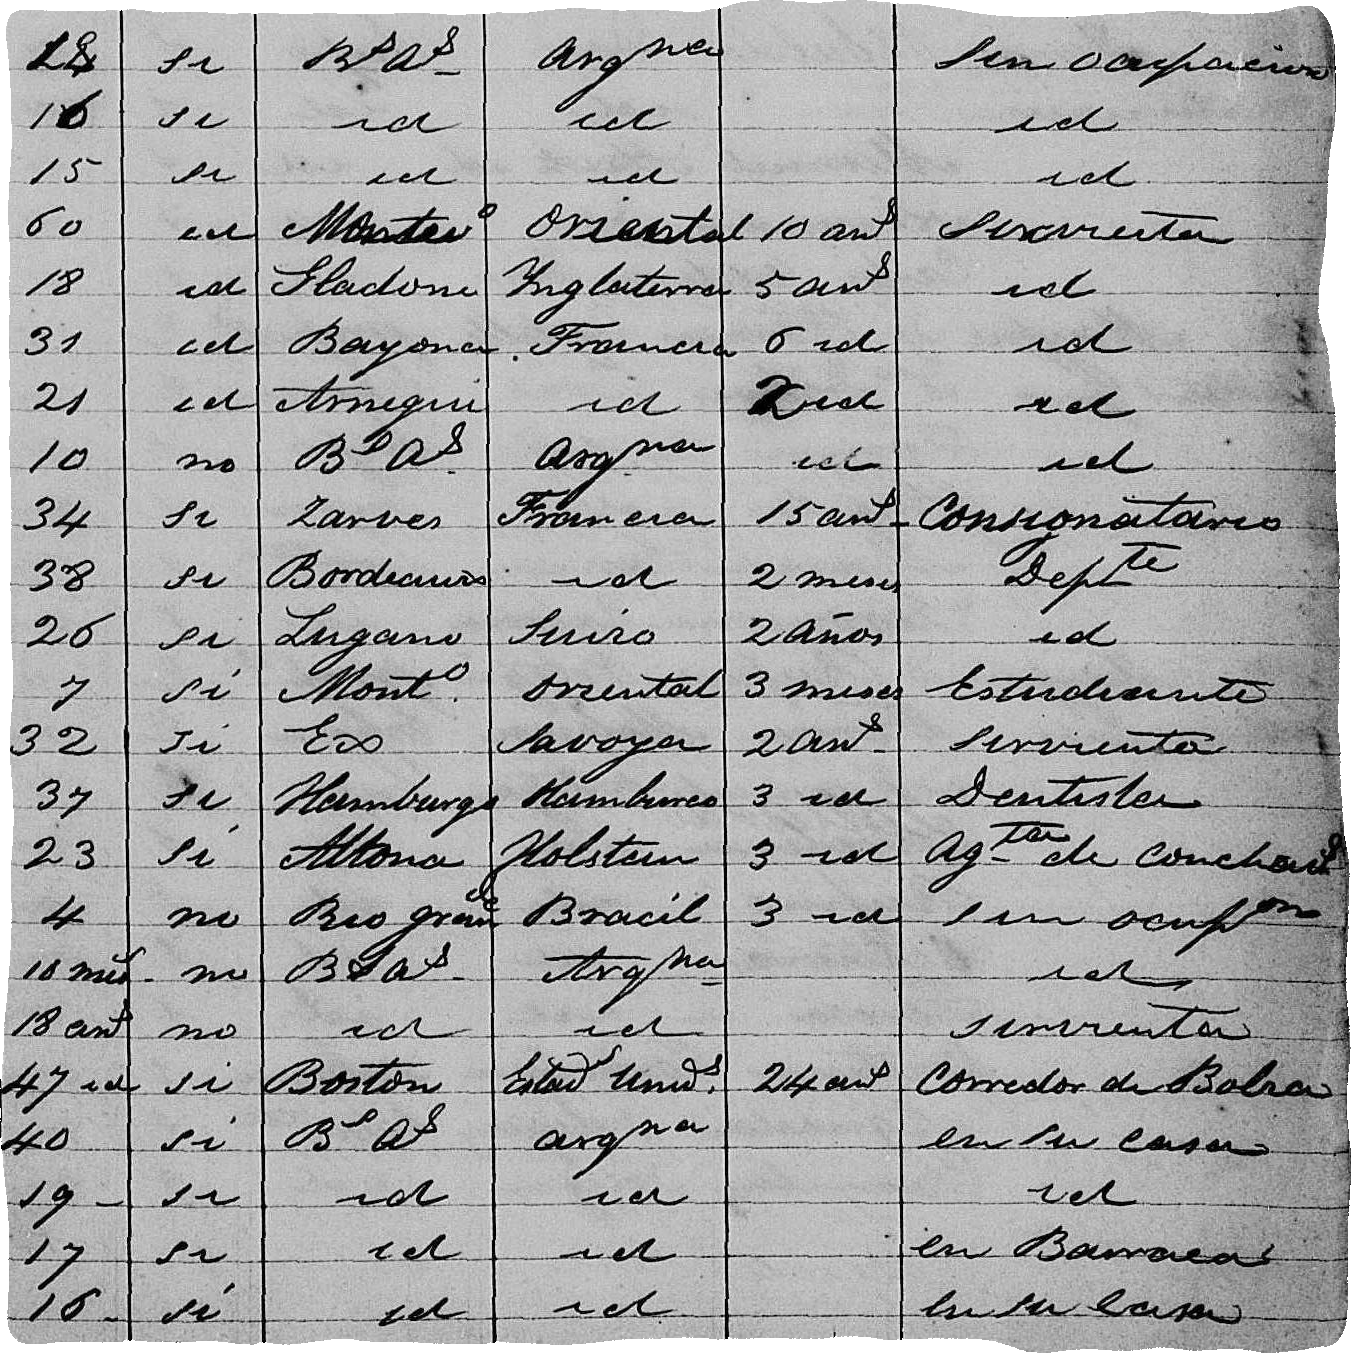 si Bs As Argna Sin ocupacion
16 si id id id
15 si id id id
60 id Montevo Oriental 10 ans Sirvienta
18 id Sladone Ynglaterra 5 ans id
31 id Bayona Francia 6 id id
21 id Arnegui id 2 id id
10 no Bs As Argna id id
34 si Zarves Francia 15 ans Consignatario
38 si Bordeaux id 2 meses Depte
26 si Lugano Suizo 2 años id
7 si Monto. Oriental 3 meses Estudiante
32 si Ex Savoya 2 ans Sirvienta
37 si Hamburgo Hamburgo 3 id Dentista
23 si Altona Holstein 3 id Agta de
4 no Rio grande Bracil 3 id Sin ocupon
10 mes no Bs As Argna id
18 ans no id id sirvienta
47 id si Boston Estads Unids. 24 ans Corredor de Bolsa
40 si Bs As argna en su casa
19 si id id id
17 si id id en Barraca
16 si id id en su casa